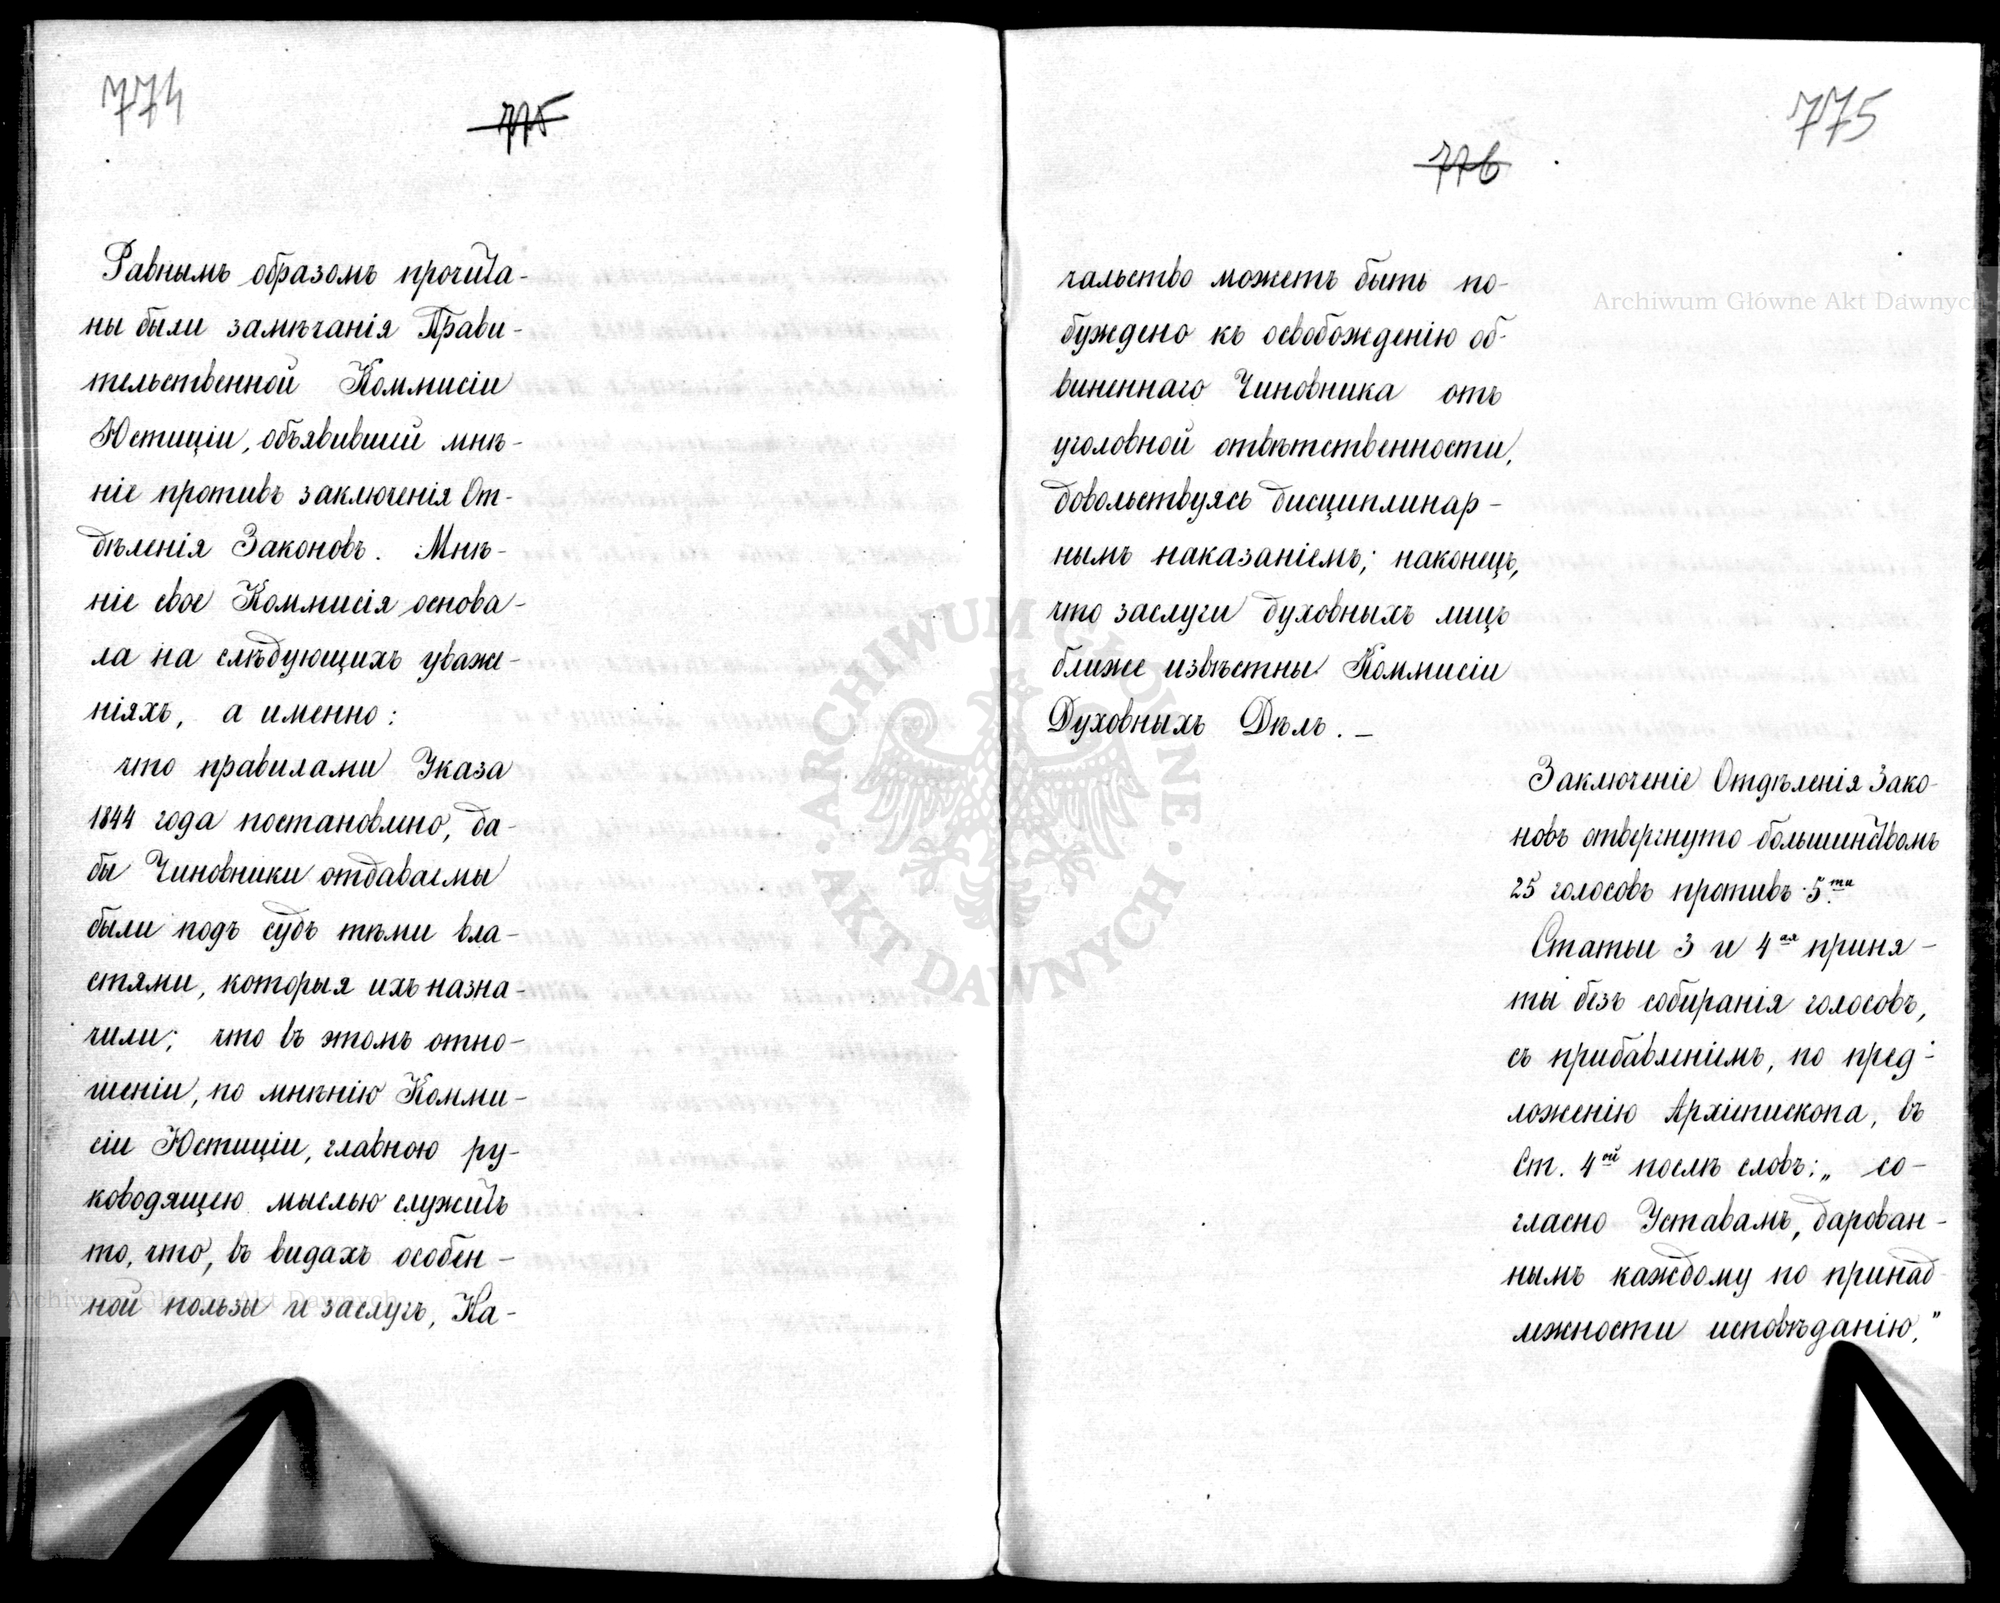 774
775
Равнымъ образомъ прочита-
ны были замѣчанія Прави-
тельственной Коммисіи
Юстиціи, объявившей мнѣ-
ніе противъ заключенія От-
дѣленія Законовъ. Мнѣ-
ніе свое Коммисія основа-
ла на слѣдующихъ уваже-
ніяхъ, а именно:
что правилами Указа
1844 года постановлено, да-
бы Чиновники отдаваемы
были подъ судъ тѣми вла-
стями, которыя ихъ назна-
чили; что въ этомъ отно-
шеніи, по мнѣнію Комми-
сіи Юстиціи, главною ру-
ководящею мыслью служитъ
то, что, въ видахъ особен-
ной пользы и заслугъ, На-
775
776
чальство можетъ быть по-
буждено къ освобожденію об-
виненнаго Чиновника отъ
уголовной отвѣтственности,
довольствуясь дисциплинар-
нымъ наказаніемъ; наконецъ,
что заслуги духовныхъ лицъ
ближе извѣстны Коммисіи
Духовныхъ Дѣлъ. –
Заключеніе Отдѣленія Зако-
новъ отвергнуто большинствомъ
25 голосовъ противъ 5.ти
Статьи 3 и 4ая приня-
ты безъ собиранія голосовъ,
съ прибавленіемъ, по пред-
ложенію Архіепископа, въ
Ст. 4ой послѣ словъ: „ со-
гласно Уставамъ, дарован-
нымъ каждому по принад-
лежности исповѣданію,"
Archiwum Główne Akt Dawnych
Archiwum Główne Akt Dawnych
ARCHIWUM GŁÓWNE · AKT DAWNYCH ·